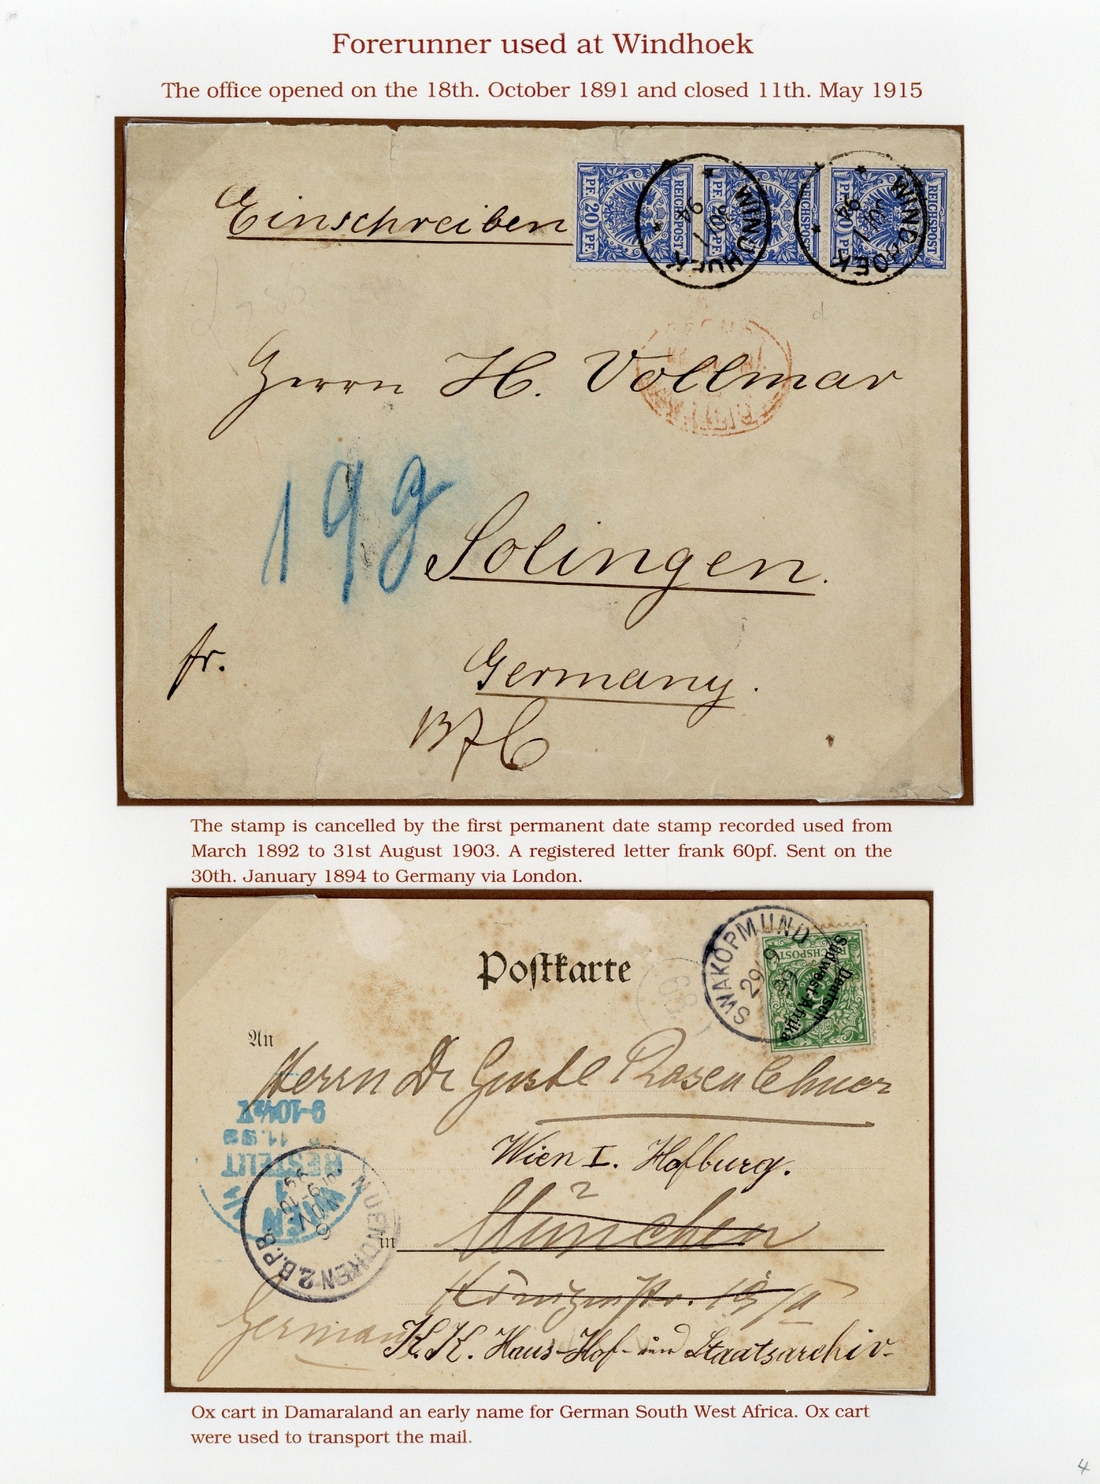 Forerunner used at Windhoek
The office opened on the 18th. October 1891 and closed 11th. May 1915
Einschreiben
PF. 20 PF. REICHSPOST
REICHSPOST
PF. 20 PF. REICHSPOST
WINDHOEK 30/1 94
WINDHOEK 30/1 94
Herrn H. Vollmar
19g
Solingen.
fr.
Germany.
The stamp is cancelled by the first permanent date stamp recorded used from
March 1892 to 31st August 1903. A registered letter frank 60pf. Sent on the
30th. January 1894 to Germany via London.
SWAKOPMUND 29/9 99
REICHSPOST
Deutsch-
Südwest-Afrika
Postkarte
An
Herrn Dr
Wien I. Hofburg.
München
in
BESTELLT
WIEN
9-10½V
11.99
MUENCHEN 2.B.P.B.
6 NOV
Germany
K. K. Haus- Hof- und Staatsarchiv-
Ox cart in Damaraland an early name for German South West Africa. Ox cart
were used to transport the mail.
4